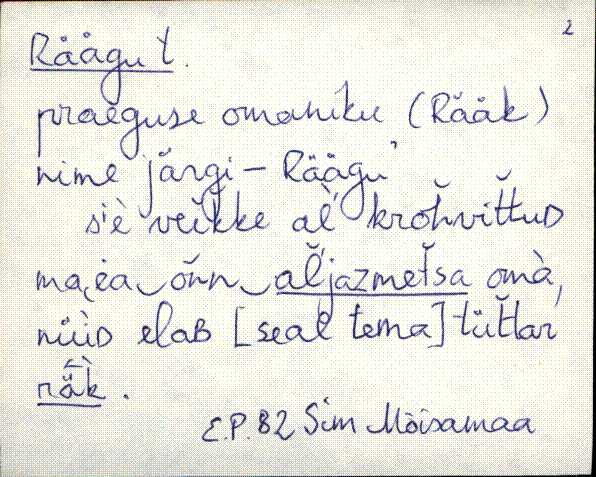 2
Räägu t.
praeguse omaniku (Rääk)
nime järgi – Räägu
siè veĭkke al̆ krŏhvit̆tuD
ma‿ea‿ŏnn‿al̆jazmet̆sa omà,
nüùD elaB [seal tema] tüt̆tar
rä̀k.
E.P. 82 Sim Mõisamaa